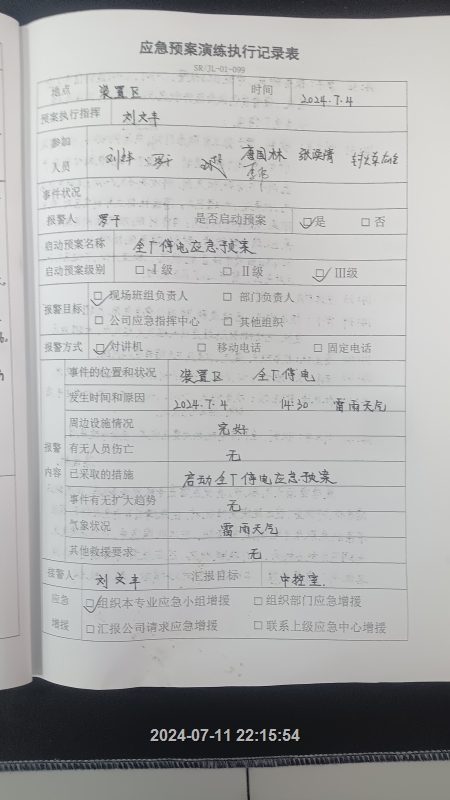 应急预案演练执行记录表
SR/JL-01-099
地点 装置区 时间 2024.7.4
预案执行指挥 刘文丰
参加 罗干 唐国林 张焕清
人员
事件状况
报警人 罗干 是否启动预案 ☑是 □否
启动预案名称 全厂停电应急预案
启动预案级别 □Ⅰ级 □Ⅱ级 ☑Ⅲ级
报警目标 ☑现场班组负责人 □部门负责人
□公司应急指挥中心 □其他组织
报警方式 ☑对讲机 □移动电话 □固定电话
事件的位置和状况 装置区 全厂停电
发生时间和原因 2024.7.4 14:30 雷雨天气
周边设施情况 完好
报警 有无人员伤亡 无
内容 已采取的措施 启动全厂停电应急预案
事件有无扩大趋势 无
气象状况 雷雨天气
其他救援要求 无
接警人 刘文丰 汇报目标 中控室
应急 ☑组织本专业应急小组增援 □组织部门应急增援
增援 □汇报公司请求应急增援 □联系上级应急中心增援
2024-07-11 22:15:54